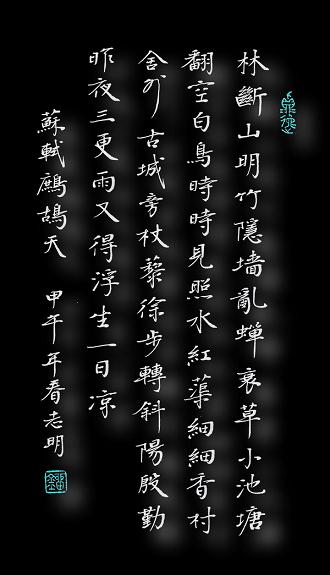 林斷山明竹隱墻亂蟬衰草小池塘
翻空白鳥時時見照水紅蕖細細香村
舍外古城旁杖藜徐步轉斜陽殷勤
昨夜三更雨又得浮生一日凉
蘇軾鷓鴣天 甲午年春老明